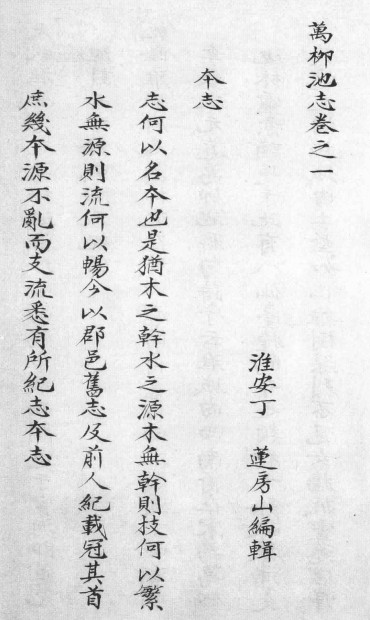 萬柳池志卷之一
淮安丁 蓮房山編輯
夲志
志何以名夲也是猶木之幹水之源木無幹則技何以繁
水無源則流何以暢今以郡邑舊志及前人紀載冠其首
庶幾夲源不亂而支流悉有所紀志夲志